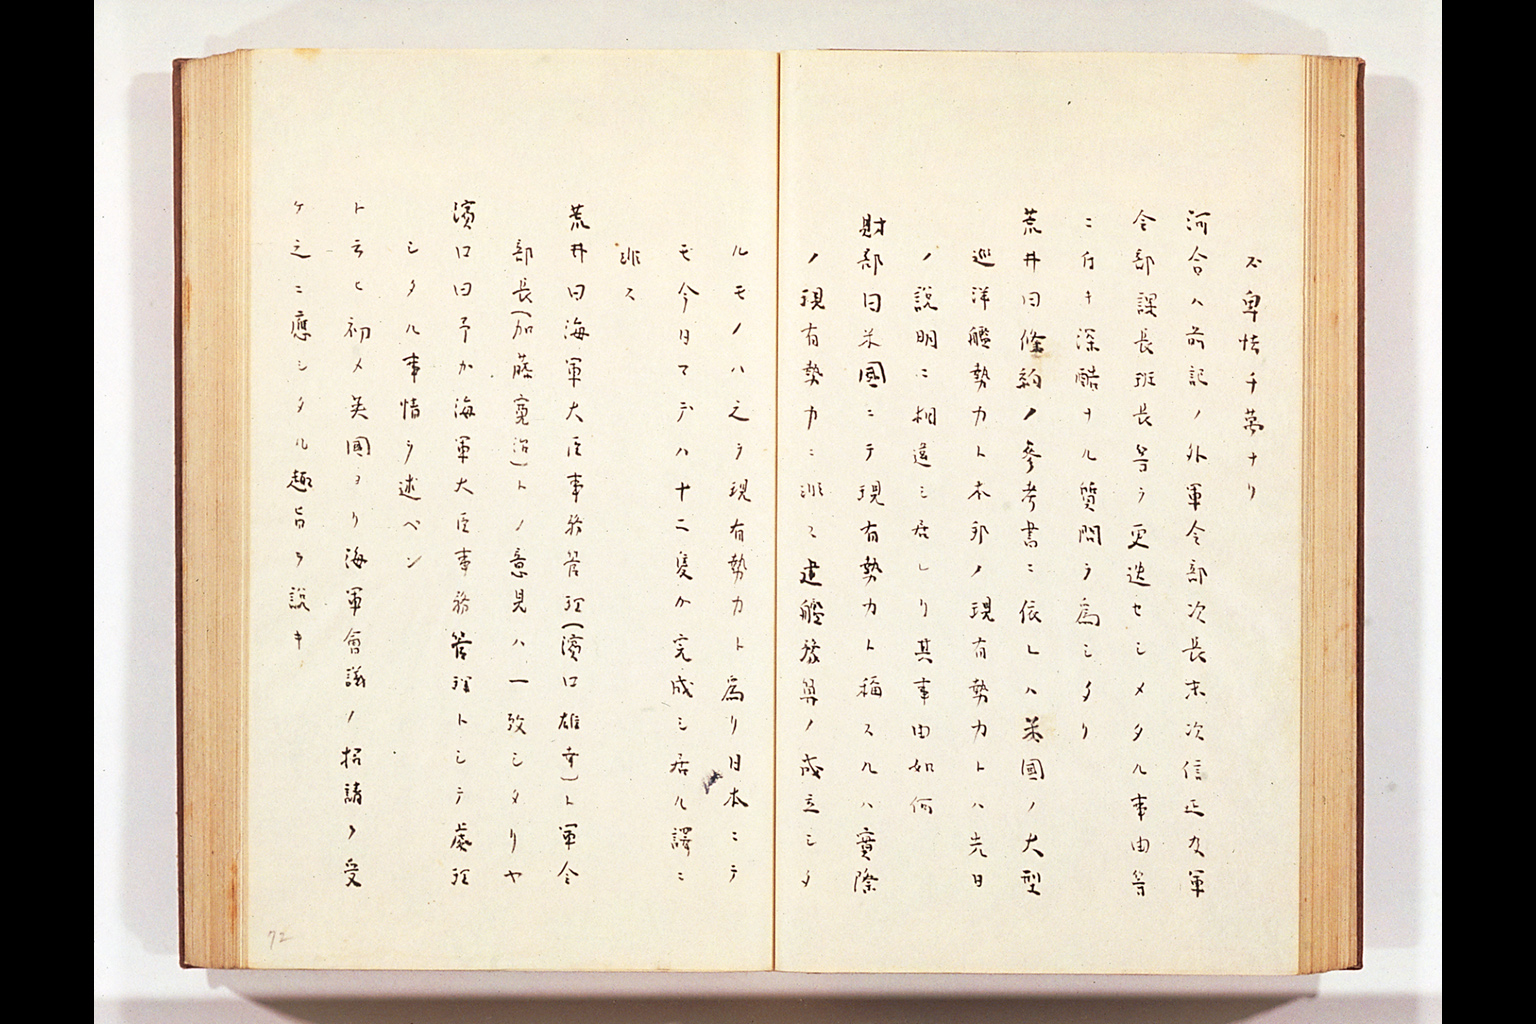 ズ卑怯千萬ナリ
河合ハ前記ノ外軍令部次長末次信正及軍
令部課長班長等ヲ更迭セシメタル事由等
ニ付キ深酷ナル質問ヲ為シタリ
荒井曰條約ノ參考書ニ依レハ米國ノ大型
巡洋艦勢力ト本邦ノ現有勢力トハ先日
ノ説明ニ相違シ居レリ其事由如何
財部曰米國ニテ現有勢力ト稱スルハ實際
ノ現有勢力ニ非ス建艦豫算ノ成立シタ
ルモノハ之ヲ現有勢力ト為リ日本ニテ
モ今日マデハ十二隻カ完成シ居ル譯ニ
非ス
荒井曰海軍大臣事務管理(濱口雄幸)ト軍令
部長(加藤寛治)トノ意見ハ一致シタリヤ
濱口曰予カ海軍大臣事務管理トシテ處理
シタル事情ヲ述ベン
ト云ヒ初メ英國ヨリ海軍會議ノ招請ヲ受
ケ之ニ應シタル趣旨ヲ説キ
72